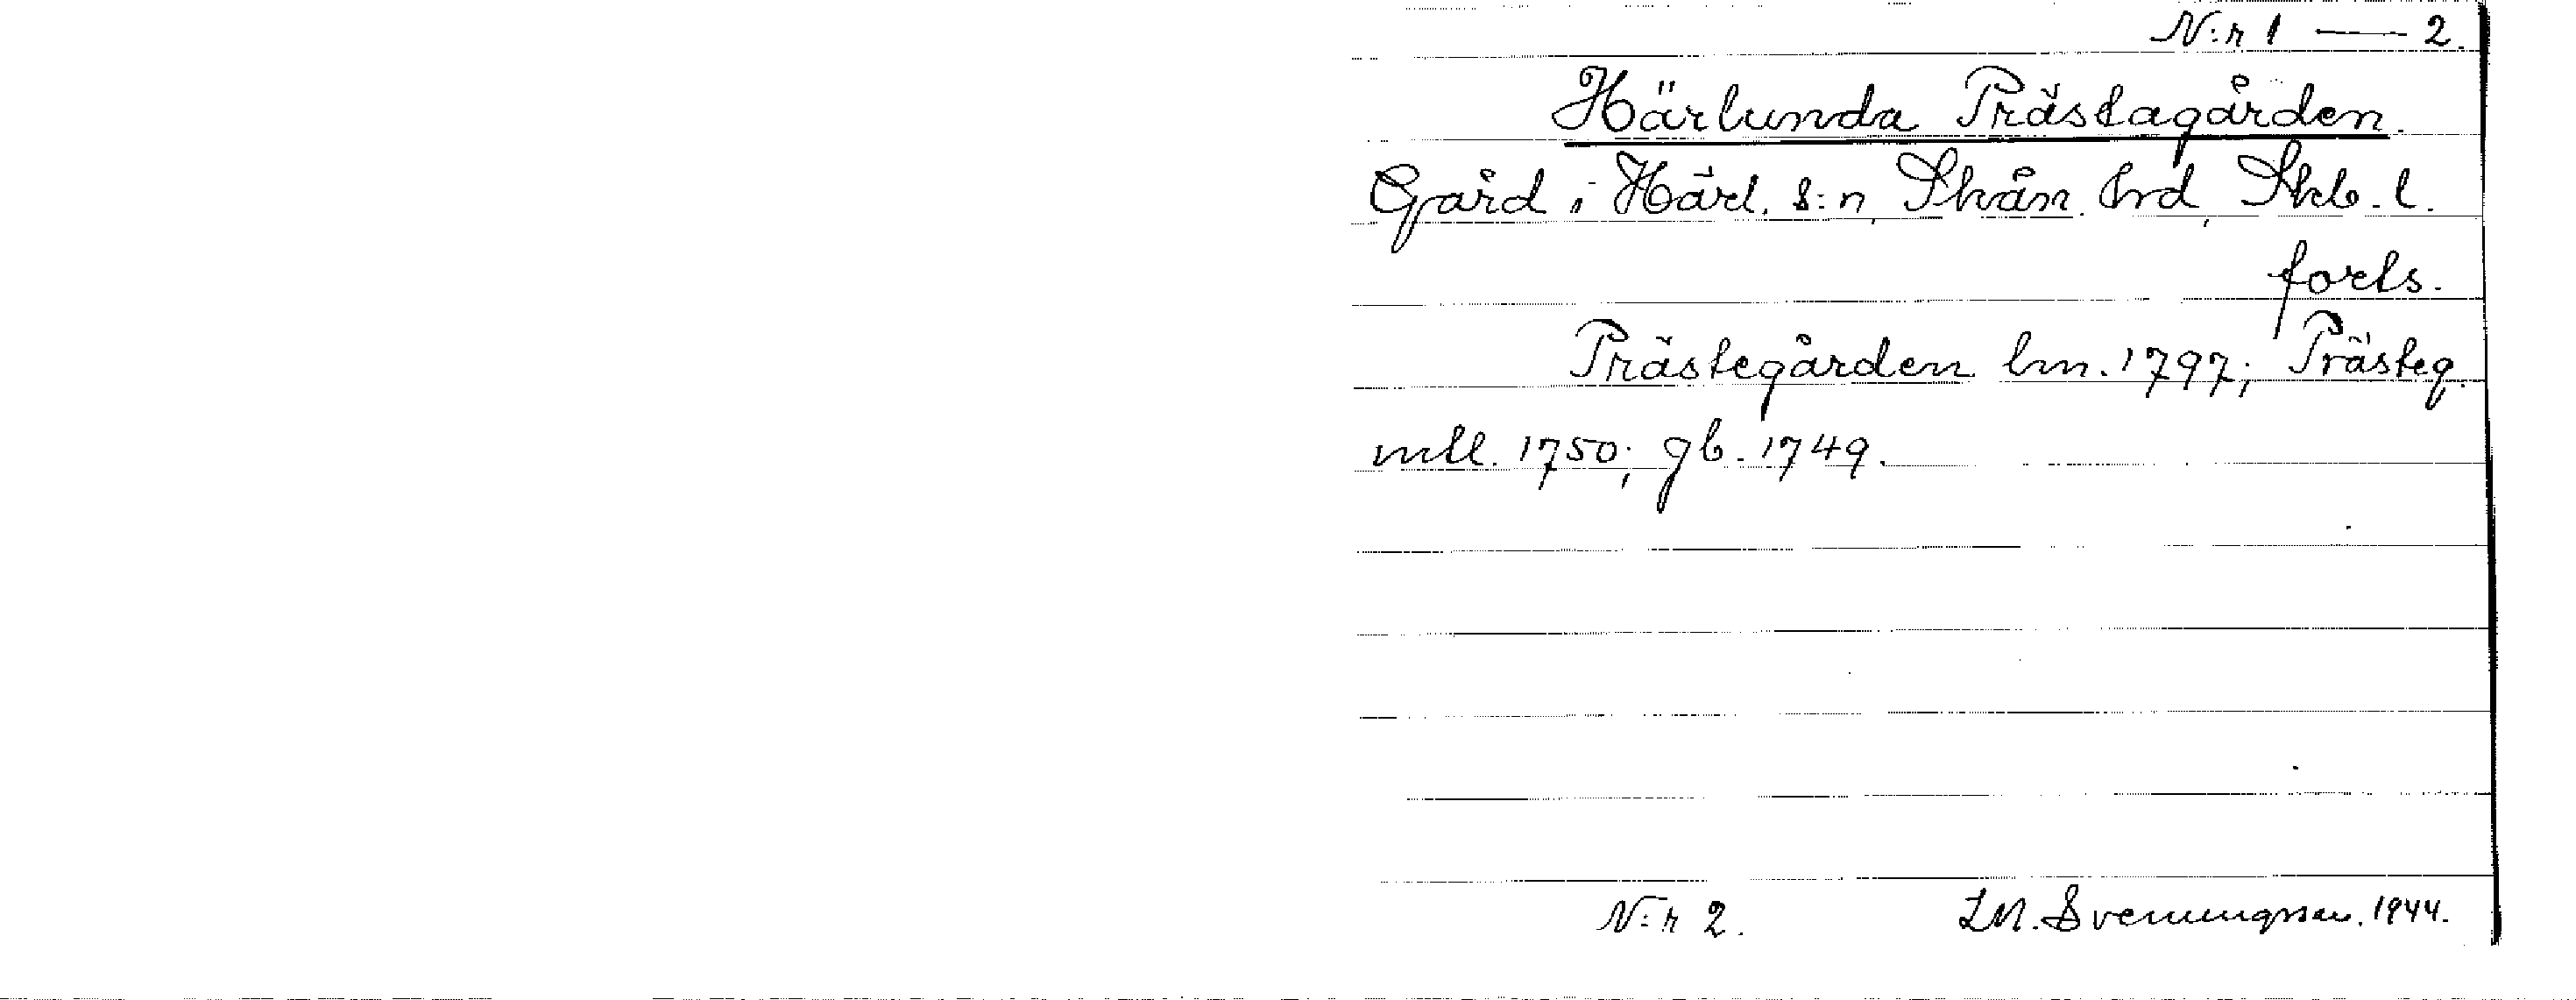 N:r 1 — 2.
Härlunda Prästagården.
Gård i Härl. s:n, Skån. hrd, Skb. l.
forts.
Prästegården lm. 1797; Prästeg.
mtl. 1750; gb. 1749.
N:r 2. I.M. Svenungsson. 1944.